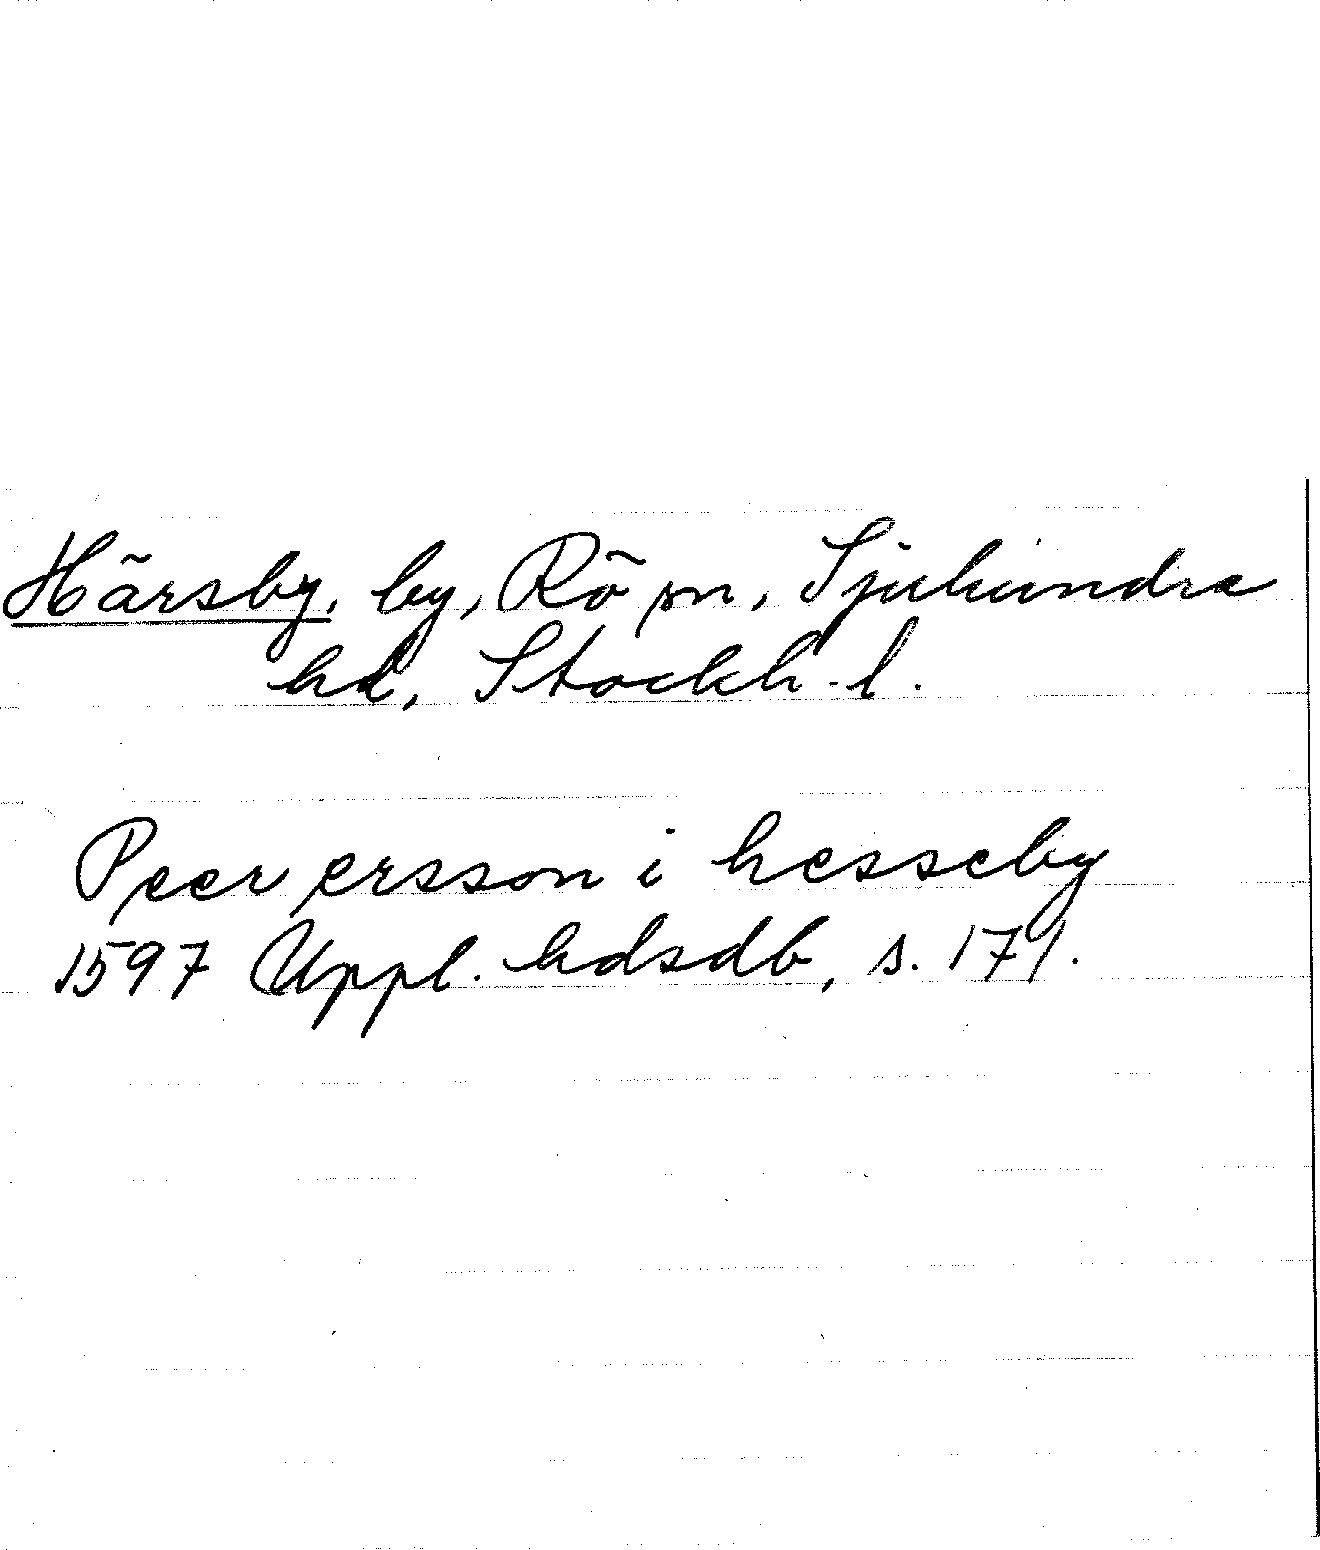 Härsby, by, Rö sn, Sjuhundra
hd, Stockh. l.
Peer ersson i hesseby
1597 Uppl. hdsdb, s. 171.